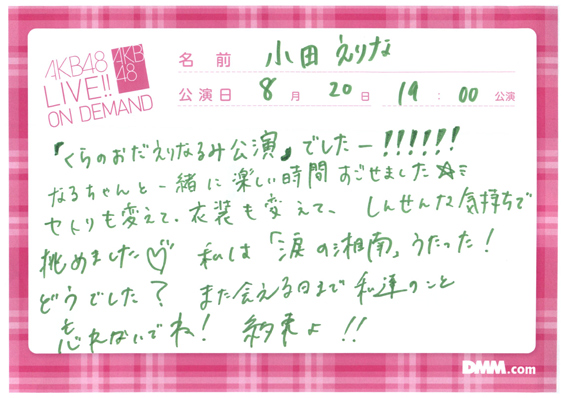 AKB48
LIVE!!
ON DEMAND
AKB
48
名前 小田えりな
公演日 8月20日 19:00公演
『くらのおだえりなるみ公演』でしたー!!!!!!
なるちゃんと一緒に楽しい時間すごせました☆ミ
セトリも変えて、衣装も変えて、しんせんな気持ちで
挑めました♡ 私は「涙の湘南」うたった!
どうでした? また会える日まで私達のこと
忘れないでね! 約束よ!!
DMM.com